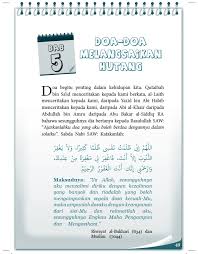 BAB
5
DOA-DOA
MELANGSAIKAN
HUTANG
Doa begitu penting dalam kehidupan kita. Qutaibah
bin Sa'id menceritakan kepada kami berkata, al-Laith
menceritakan kepada kami, daripada Yazid bin Abi Habib
menceritakan kepada kami, daripada Abi al-Khair daripada
Abdullah bin Amru daripada Abu Bakar al-Siddiq RA
bahawa sesungguhnya dia bertanya kepada Rasulullah SAW:
"Ajarkanlahku doa yang aku boleh berdoa dengannya dalam
solatku". Sabda Nabi SAW: Katakanlah:
اللَّهُمَّ إِنِّي ظَلَمْتُ نَفْسِي ظُلْمًا كَثِيرًا، وَلَا يَغْفِرُ
الذُّنُوبَ إِلَّا أَنْتَ، فَاغْفِرْ لِي مَغْفِرَةً مِنْ عِنْدِكَ
وَارْحَمْنِي، إِنَّكَ أَنْتَ الْغَفُورُ الرَّحِيمُ
Maksudnya: "Ya Allah, sesungguhnya
aku menzalimi diriku dengan kezaliman
yang banyak dan tiadalah yang boleh
mengampunkan segala dosa kecuali-Mu,
maka ampunkanlah daku dengan keampunan
dari sisi-Mu dan rahmatilah aku,
sesungguhnya Engkau Maha Pengampun
dan Mengasihani."
Riwayat al-Bukhari (834) dan
Muslim
49